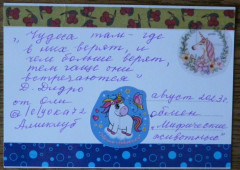 „Чудеса там - где
в них верят, и
чем больше верят,
тем чаще они
встречаются"
Д. Дидро
от Оли
август 2023г
обмен
"Мифические
животные"